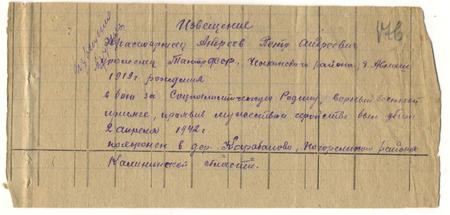 Извещение
176
Красноармеец Андреев Петр Андреевич
уроженец ТатАССР, района, д.
1912 г. рождения
в бою за Социалистическую Родину, верный военной
присяге, проявив мужество и геройство был убит
2 апреля 1942 г.
похоронен в дер. Карабаново, Погорельского района
Калининской области.